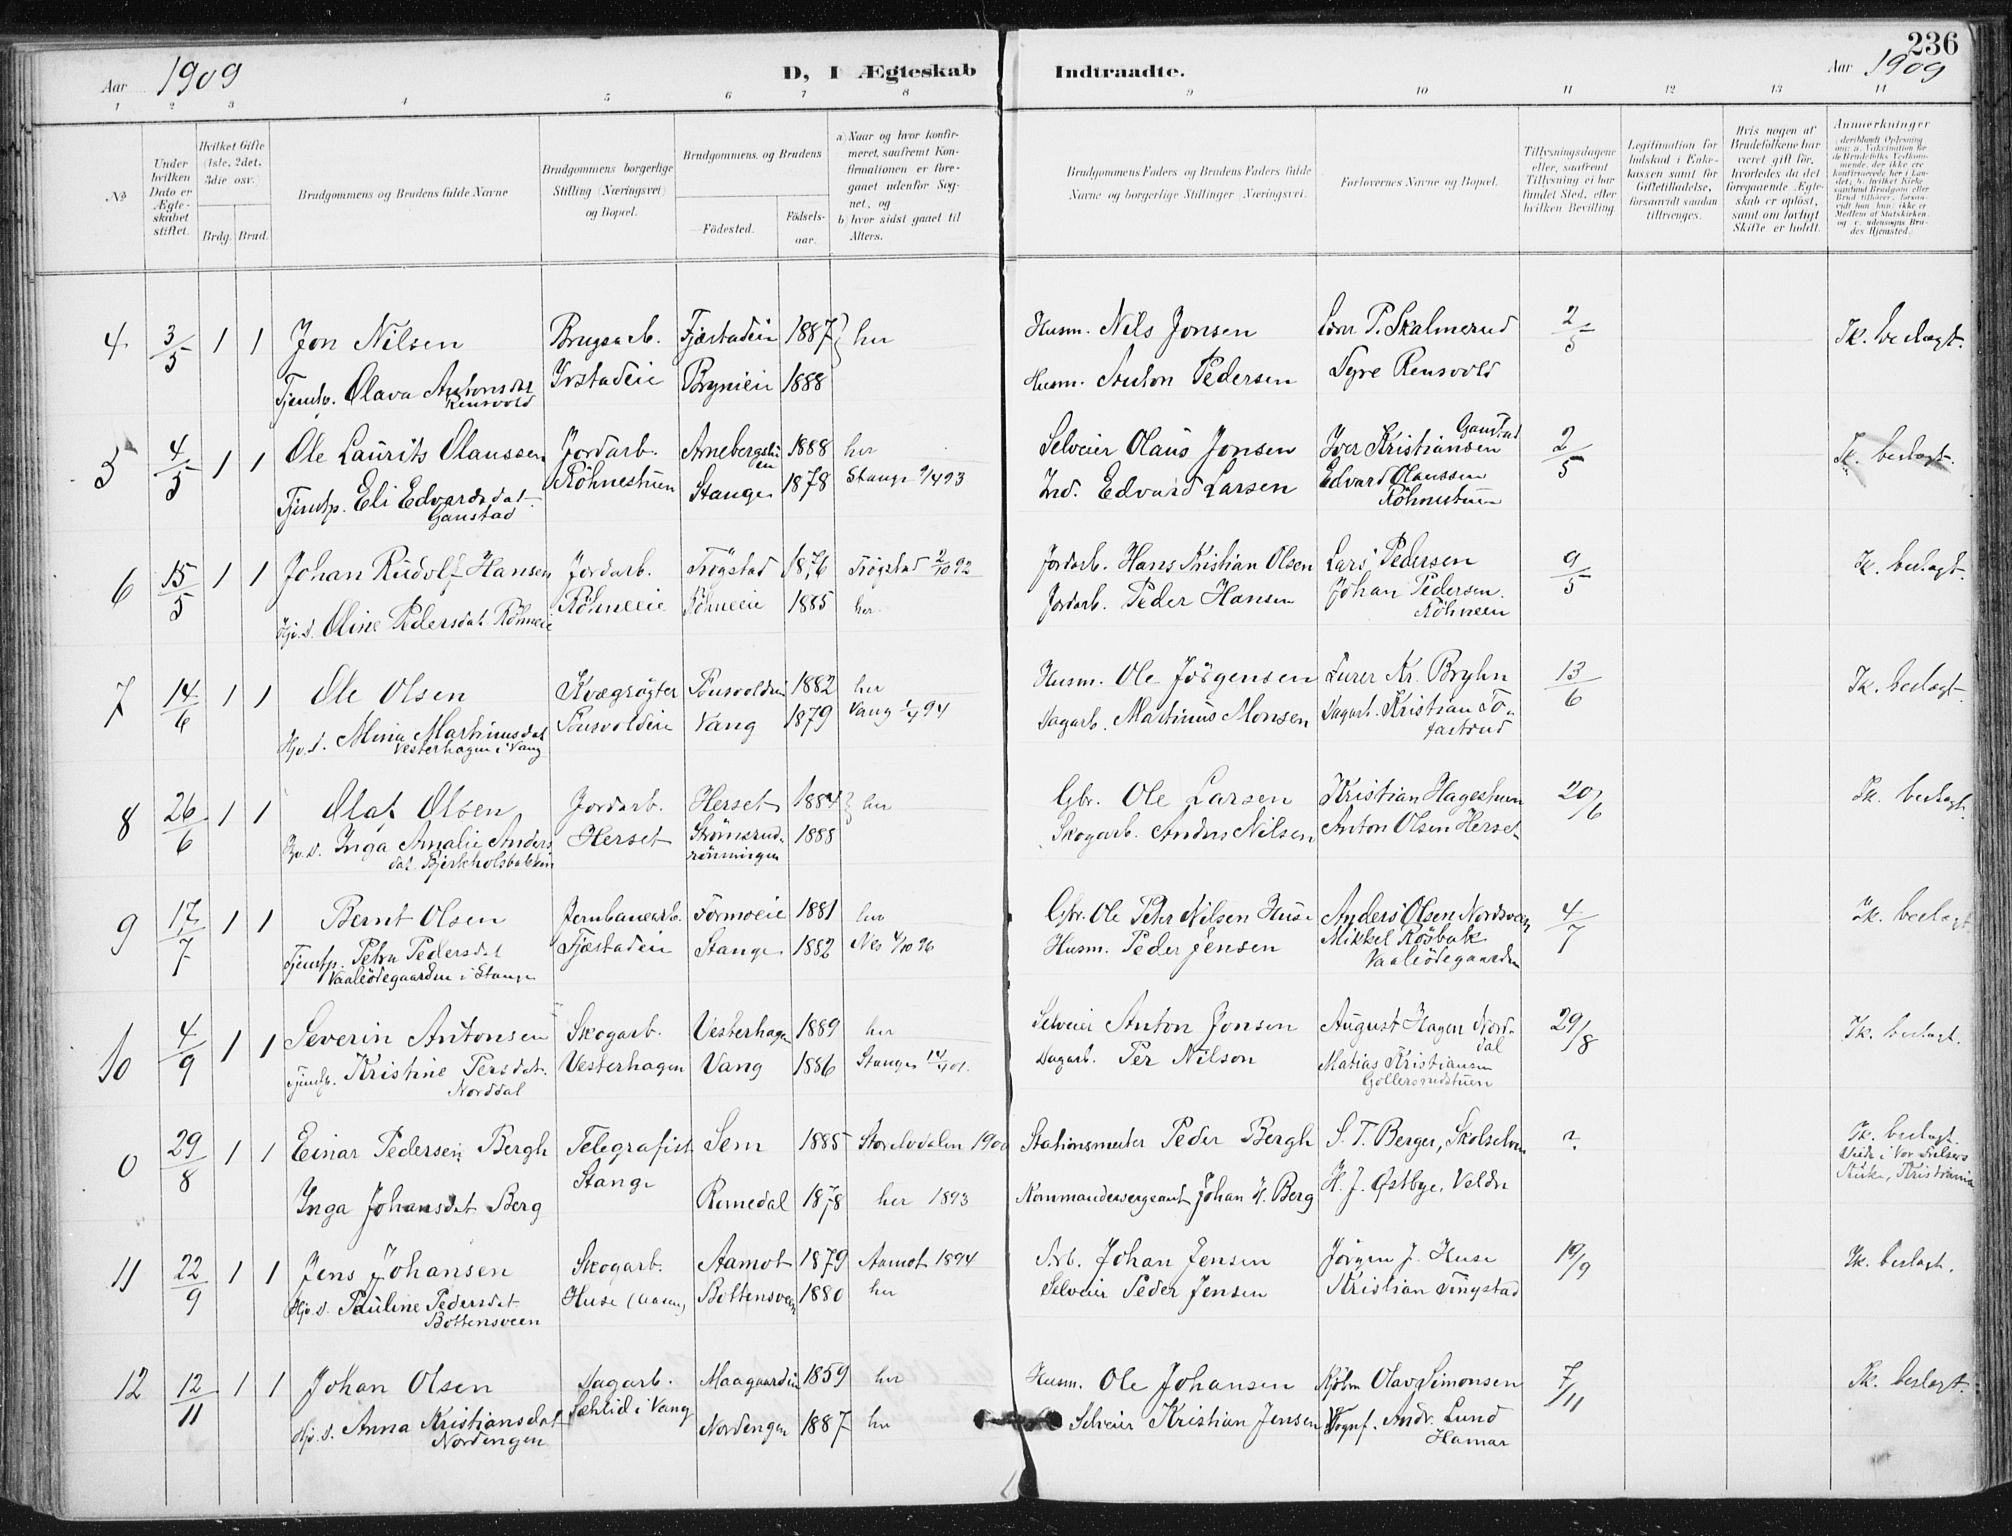 236
Aar 1909
D, I Ægteskab Indtraadte.
Aar 1909
1 2 3 4 5 6 7 8 9 10 11 12 13 14
No
Under hvilken Dato er Ægteskabet stiftet.
Hvilket Gifte (1ste, 2det, 3die osv.)
Brdg. Brud.
Brudgommens og Brudens fulde Navne
Brudgommens borgerlige Stilling (Næringsvei) og Bopæl.
Brudgommens og Brudens
Födested. Födselsaar.
a) Naar og hvor konfirmeret, saafremt Konfirmationen er foregaaet udenfor Sognet, og
b) hvor sidst gaaet til Alters.
Brudgommens Faders og Brudens Faders fulde Navne og borgerlige Stillinger (Næringsvei).
Forlovernes Navne og Bopæl.
Tillysningsdagene eller, saafremt Tillysning ei har fundet Sted, efter hvilken Bevilling.
Legitimation for Indskud i Enkekassen samt for Giftetilladelse, forsaavidt saadan tiltrænges.
Hvis nogen af Brudefolkene har været gift för, hvorledes da det foregaaende Ægteskab er oplöst, samt om lovligt Skifte er holdt.
Anmerkninger
4 3/5 1 1 Jon Nilsen Brugsarb. Fjæstadeie 1887 } her Husm. Nils Jonsen Lars P. Skalmerud 2/5 Ik. beslægt.
Tjenstp. Olava Antonsdat Ivstadeie Brynieie 1888 Husm. Anton Pedersen Syver Rensvold
Rensvold
5 4/5 1 1 Ole Laurits Olaussen Jordarb. Arnebergstuen 1888 her Selveier Olaus Jonsen Iver Kristiansen Ganstad 2/5 Ik. beslægt.
Tjenstp. Eli Edvardsdat. Röhnestuen Stange 1878 Stange Ind. Edvard Larsen Edvard Olaussen
Ganstad Röhnestuen
6 15/5 1 1 Johan Rudolf Hansen Jordarb. Trögstad 1876 Trögstad 2/10 92 Jordarb. Hans Kristian Olsen Lars Pedersen 9/5 Ik. beslægt.
Hjv.d. Oline Pedersdat Rönneie Röhneeie Röhneeie 1885 her Jordarb. Peder Hansen Johan Pedersen.
Röhneen
7 14/6 1 1 Ole Olsen Kvægrögter 1882 her Husm. Ole Jörgensen Lurer Kr. Bryhn 13/6 Ik. beslægt.
Hjv.d. Mina Martinusdat Vang 1879 Vang 94 Dagarb. Martinus Monsen Dagarb. Kristian To-
Vesterhagen i Vang fastrud
8 26/6 1 1 Olaf Olsen Jordarb. Herset 1884 } her Gbr. Ole Larsen Kristian Hagestuen 20/6 Ik. beslægt.
Hjv.d. Inga Amalie Anders Herset Strömsrud- 1888 Skogarb. Anders Nilsen Anton Olsen Herset
dat. Bjerkholsbakken rönningen
9 17/7 1 1 Bernt Olsen Jernbanearb. Tormoeie 1881 her Gbr. Ole Peter Nilsen Huse Anders Olsen Nordsveen 4/7 Ik. beslægt.
Tjenstp. Petra Pedersdat Fjæstadeie Stange 1882 Nes 4/10 96 Husm. Peder Jensen Mikkel Rösbak
Vaaleödegaarden i Stange Vaaleödegaarden
10 4/9 1 1 Severin Antonsen Skogarb. Vesterhagen 1889 her Selveier Anton Jonsen August Hagen Nord- 29/8 Ik. beslægt.
Tjenstp. Kristine Persdat. Vesterhagen Vang 1886 Stange Dagarb. Per Nilson dal
Norddal Matias Kristiansen
Gollersrudstuen
0 29/8 1 1 Einar Pedersen Bergh Telegrafist Sem 1885 Storelvdalen 1900 Stationsmester Peder Bergh S. T. Berger, ? Ik. beslægt.
Inga Johansdat Berg Stange Romedal 1878 her 1893 Kommandersergeant Johan H. Berg H. J. Østbye, Velden Viede i Vor Frelsers
Kirke, Kristiania
11 22/9 1 1 Jens Johansen Skogarb. Aamot 1879 Aamot 1894 Arb. Johan Jensen Jörgen J. Huse 19/9 Ik. beslægt.
Hjv.d. Pauline Pedersdat Huse (Aasen) Bottensveen 1880 her Selveier Peder Jensen Kristian Tingstad
Bottensveen
12 12/11 1 1 Johan Olsen Dagarb. Maagaardeie 1859 her Husm. Ole Johansen Kjöbm Olav Simonsen 7/11 Ik. beslægt.
Hjv.d. Anna Kristiansdat Sæhlid i Vang Nordengen 1887 her Selveier Kristian Jensen Vognf. Andr. Lund
Nordengen Hamar